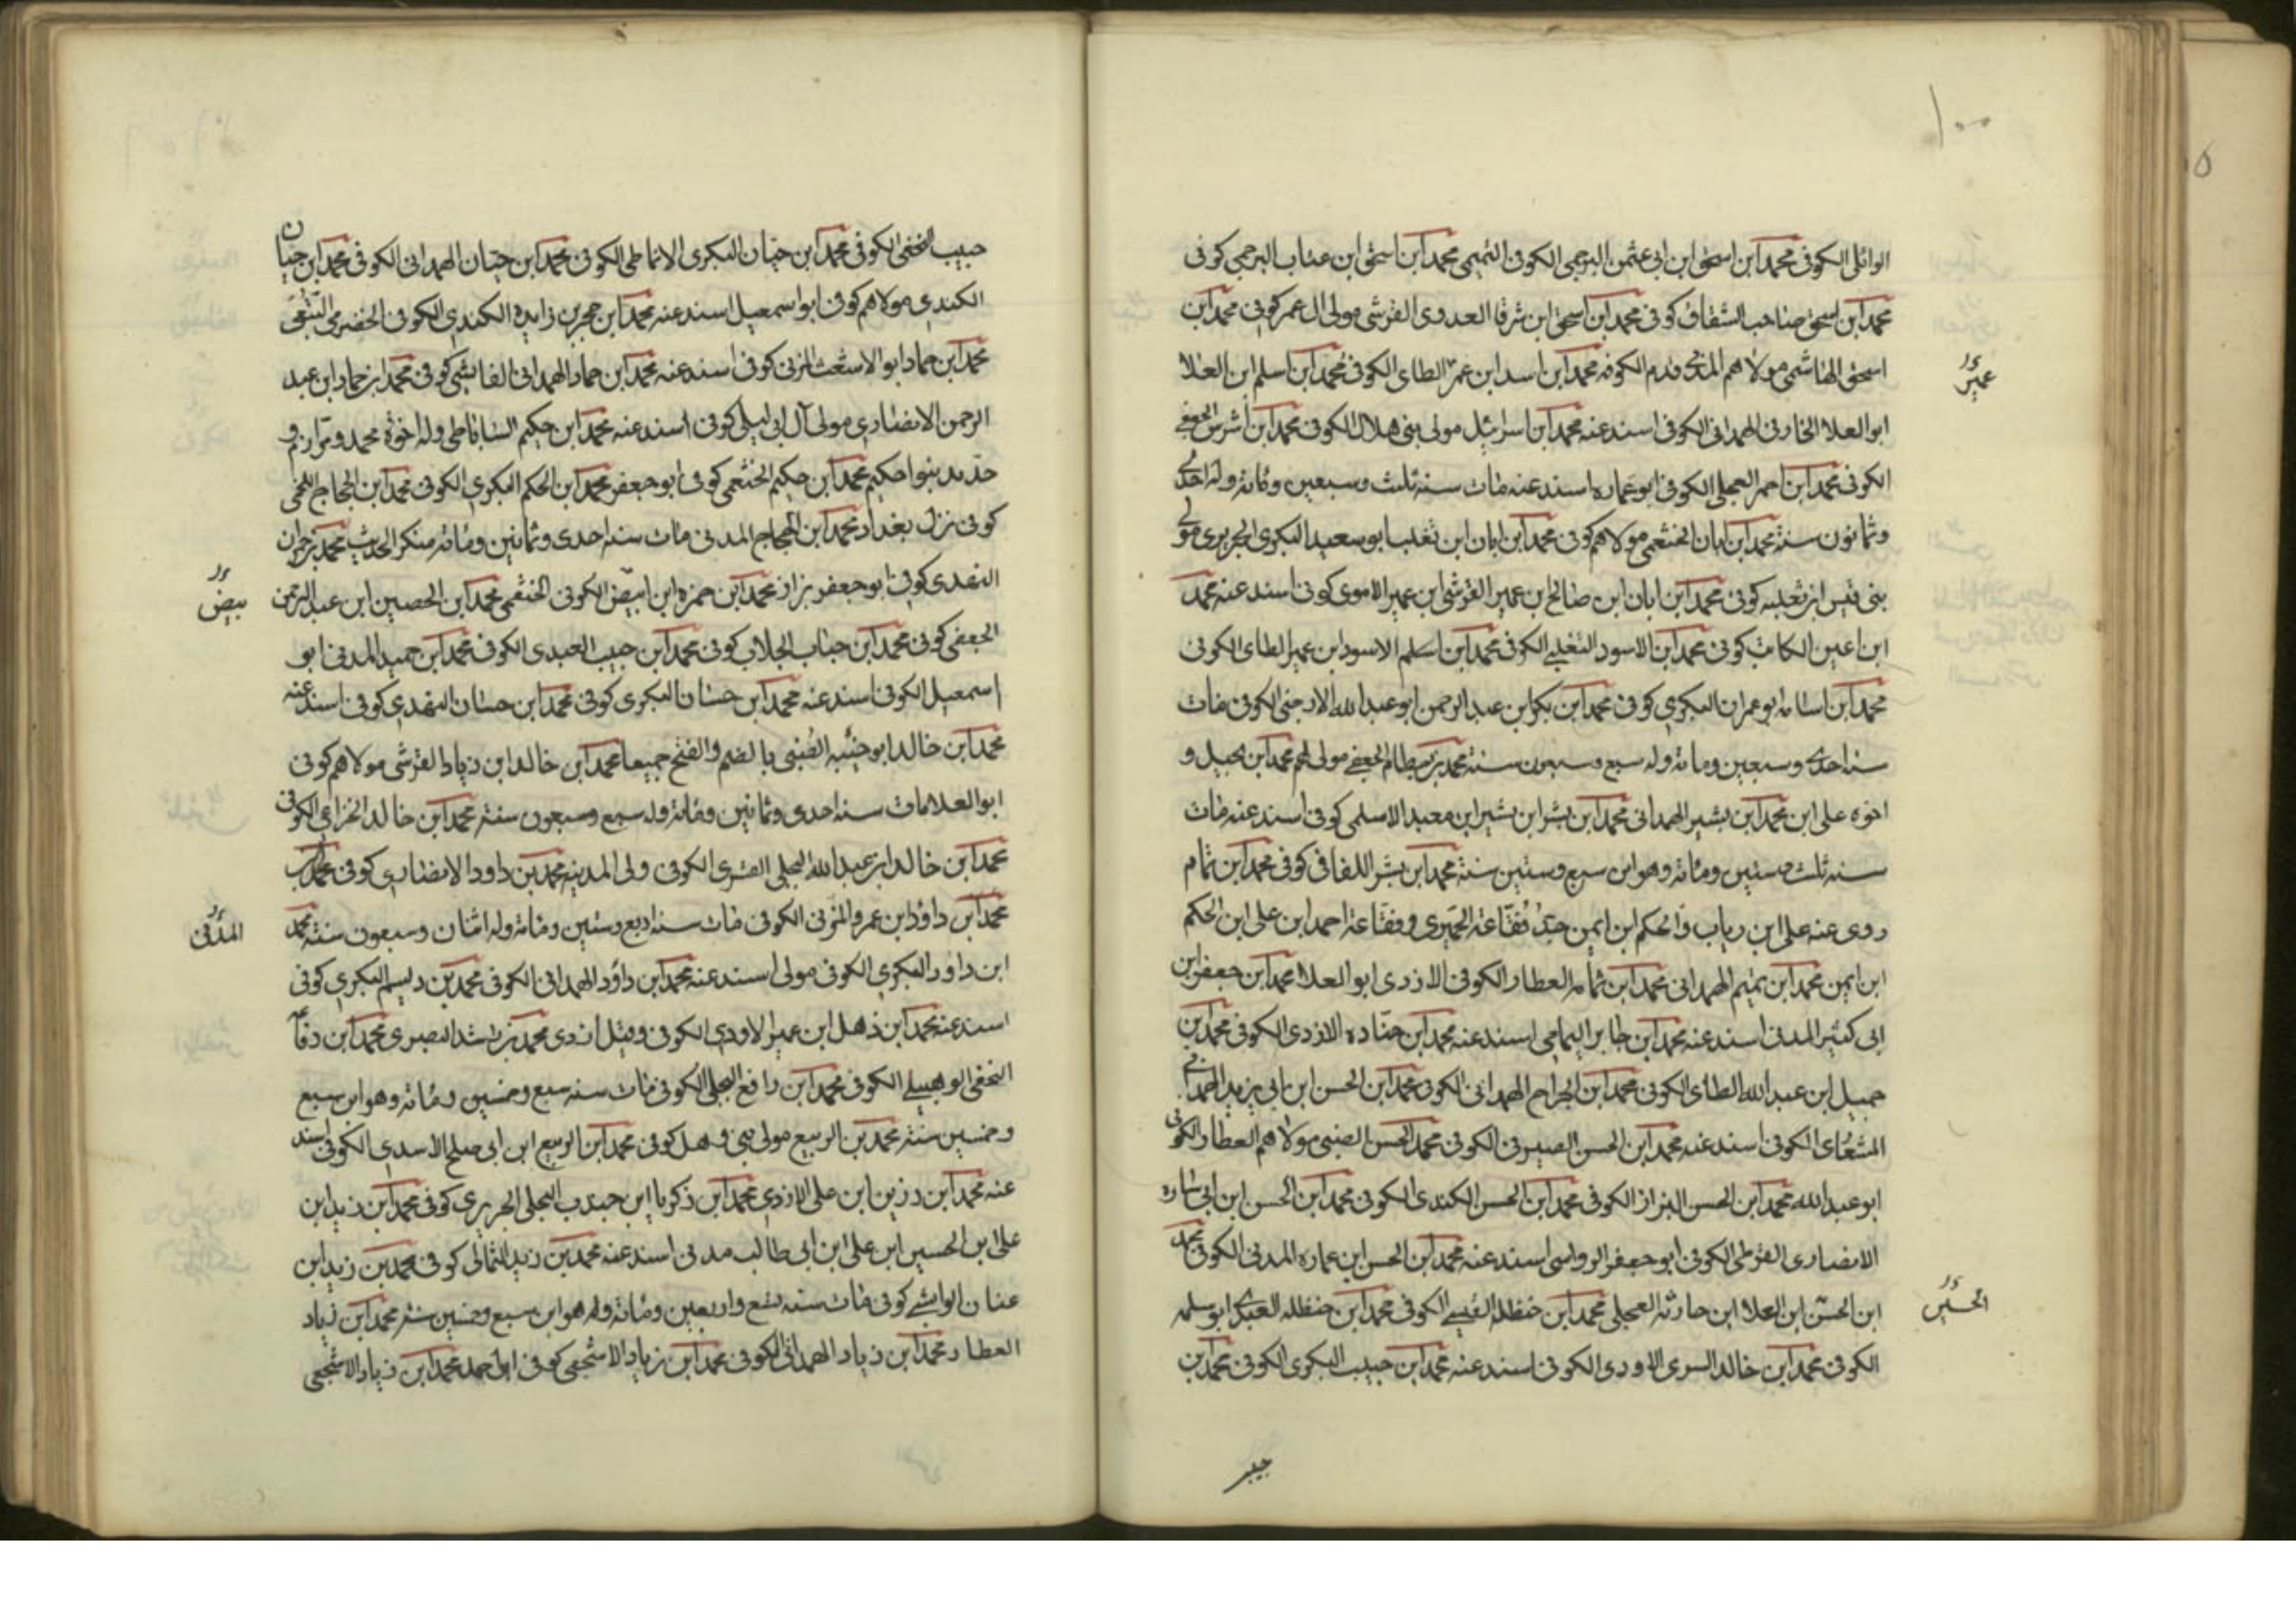 ١٠٠
الوائلي الكوفي محمد ابن اسحق ابن ابي عثمن البرجمي الكوفي التميمي محمد ابن اسحق ابن عتاب البرجمي كوفي
محمد ابن اسحق صاحب الشقاق كوفي محمد ابن اسحق ابن شرفا العدوي القرشي مولى ال عمر كوفي محمد ابن
اسحق الهاشمي مولاهم المدني قدم الكوفه محمد ابن اسد ابن عمر الطاى الكوفي محمد ابن اسلم ابن العلا
عمير
ابو العلا الخارفي الهمداني الكوفي اسند عنه محمد ابن اسرائيل مولى بني هلال الكوفي محمد ابن اشرس الجعفي
الكوفي محمد ابن احمر العجلي الكوفي ابو عماره اسند عنه مات سنة ثلث وسبعين ومائة وله احدى
وثمانون سنة محمد ابن ابان الخثعمي مولاهم كوفي محمد ابن ابان ابن تغلب ابو سعيد البكري الجريري مولى
بني قيس ابن ثعلبه كوفي محمد ابن ابان ابن صالح بن عمير القرشي ابن عمير الاموي كوفي اسند عنه محمد
ابن اعين الكاتب كوفي محمد ابن الاسود التغلبي الكوفي محمد ابن اسلم الاسود ابن عمير الطاى الكوفي
محمد ابن اسامه ابو عمران البكري كوفي محمد ابن بكر ابن عبد الرحمن ابو عبد الله الارحبي الكوفي مات
سنة احدى وسبعين ومائة وله سبع وسبعون سنة محمد بن بسطام الجعفي مولى لهم محمد ابن بجيل و
اخوه على ابن محمد ابن بشير الهمداني محمد ابن بشر ابن بشير ابن معبد الاسلمي كوفي اسند عنه مات
سنة ثلث وستين ومائة وهو ابن سبع وستين سنة محمد ابن بشر اللفافى كوفي محمد ابن تمام
روى عنه على ابن رياب والحكم ابن ايمن جد فقاعة الخميري وفقاعة احمد ابن على ابن الحكم
ابن ايمن محمد ابن تميم الهمداني محمد ابن ثمامه العطار الكوفي الازدي ابو العلا محمد ابن جعفر ابن
ابي كثير المدني اسند عنه محمد ابن جابر اليمامي اسند عنه محمد ابن جناده الازدي الكوفي محمد بن
جميل ابن عبد الله الطاى الكوفي محمد ابن الجراح الهمداني الكوفي محمد ابن الحسن ابن ابي يزيد الهمداني
المشعاى الكوفي اسند عنه محمد ابن الحسن الصيرفي الكوفي محمد الحسن الضبي مولاهم العطار الكوفي
ابو عبد الله محمد ابن الحسن البزاز الكوفي محمد ابن الحسن الكندي الكوفي محمد ابن الحسن ابن ابي ساره
الانصاري القرظي الكوفي ابو جعفر الرواسي اسند عنه محمد ابن الحسن ابن عماره المدني الكوفي محمد
ابن الحسن ابن العلا ابن حارثه العجلي محمد ابن حنظله القيسي الكوفي محمد ابن حنظله العبدي ابو سلمه
الحسين
الكوفي محمد ابن خالد السري الاودي الكوفي اسند عنه محمد ابن حبيب البكري الكوفي محمد بن
حبيب
حبيب النخعي الكوفي محمد ابن حيان البكري الانماطي الكوفي محمد ابن حيان الهمداني الكوفي محمد ابن حيان
الكندي مولاهم كوفي ابو اسمعيل اسند عنه محمد ابن حجر بن زايده الكندي الكوفي الحضرمي
محمد ابن حماد ابو الاشعث المزني كوفي اسند عنه محمد ابن حماد الهمداني الفائشي كوفي محمد ابن حماد ابن عبد
الرحمن الانصاري مولى آل ابي ليلى كوفي اسند عنه محمد ابن حكيم الساباطي وله اخوة محمد ومرازم و
حديد بنوا حكيم محمد ابن حكيم الخثعمي كوفي ابو جعفر محمد ابن الحكم البكري الكوفي محمد ابن الحجاج اللخمي
كوفي نزل بغداد محمد ابن الحجاج المدني مات سنة احدى وثمانين ومائة منكر الحديث محمد بن حمران
النهدي كوفي ابو جعفر بزاز محمد ابن حمزه ابن ابيض الكوفي الخثعمي محمد ابن الحصين ابن عبد الرحمن
بيض
الجعفي كوفي محمد ابن حباب الجلاب كوفي محمد ابن حبيب العبدي الكوفي محمد ابن حميد المدني ابو
اسمعيل الكوفي اسند عنه محمد ابن حسان البكري كوفي محمد ابن حسان النهدي كوفي اسند عنه
محمد ابن خالد ابو خنيبه الضبي بالضم والفتح جميعا محمد ابن خالد ابن زياد القرشي مولاهم كوفي
ابو العلا مات سنة احدى وثمانين ومائة وله سبع وسبعون سنة محمد ابن خالد الخزاعي الكوفي
محمد ابن خالد ابن عبد الله البجلي القسري الكوفي ولى المدينه محمد بن داود الانصاري كوفي محمد ابن
محمد ابن داؤد ابن عمرو المزني الكوفي مات سنة اربع وستين ومائة وله اثنان وسبعون سنة محمد
المدني
ابن داود البكري الكوفي مولى اسند عنه محمد ابن داؤد الهمداني الكوفي محمد بن دليم البكري كوفي
اسند عنه محمد ابن ذهل ابن عمير الاودي الكوفي وقيل ازدي محمد بن راشد البصري محمد ابن
النخعي الوهبيلي الكوفي محمد ابن رافع البجلي الكوفي مات سنة سبع وخمسين ومائة وهو ابن سبع
وخمسين سنة محمد بن الربيع مولى بني ذهل كوفي محمد ابن الربيع ابن ابي صلح الاسدي الكوفي اسند
عنه محمد ابن رزين ابن على الازدي محمد ابن زكريا ابن جندب البجلي الجريري كوفي محمد ابن زيد ابن
على ابن الحسين ابن على ابن ابي طالب مدني اسند عنه محمد بن زيد الثمالى كوفي محمد بن زيد ابن
عنان الوابشي كوفي مات سنة تسع واربعين ومائة وله هو ابن سبع وخمسين سنة محمد ابن زياد
العطار محمد ابن زياد الهمداني الكوفي محمد ابن زياد الاشجعي كوفي ابو احمد محمد ابن زياد الاشجعي